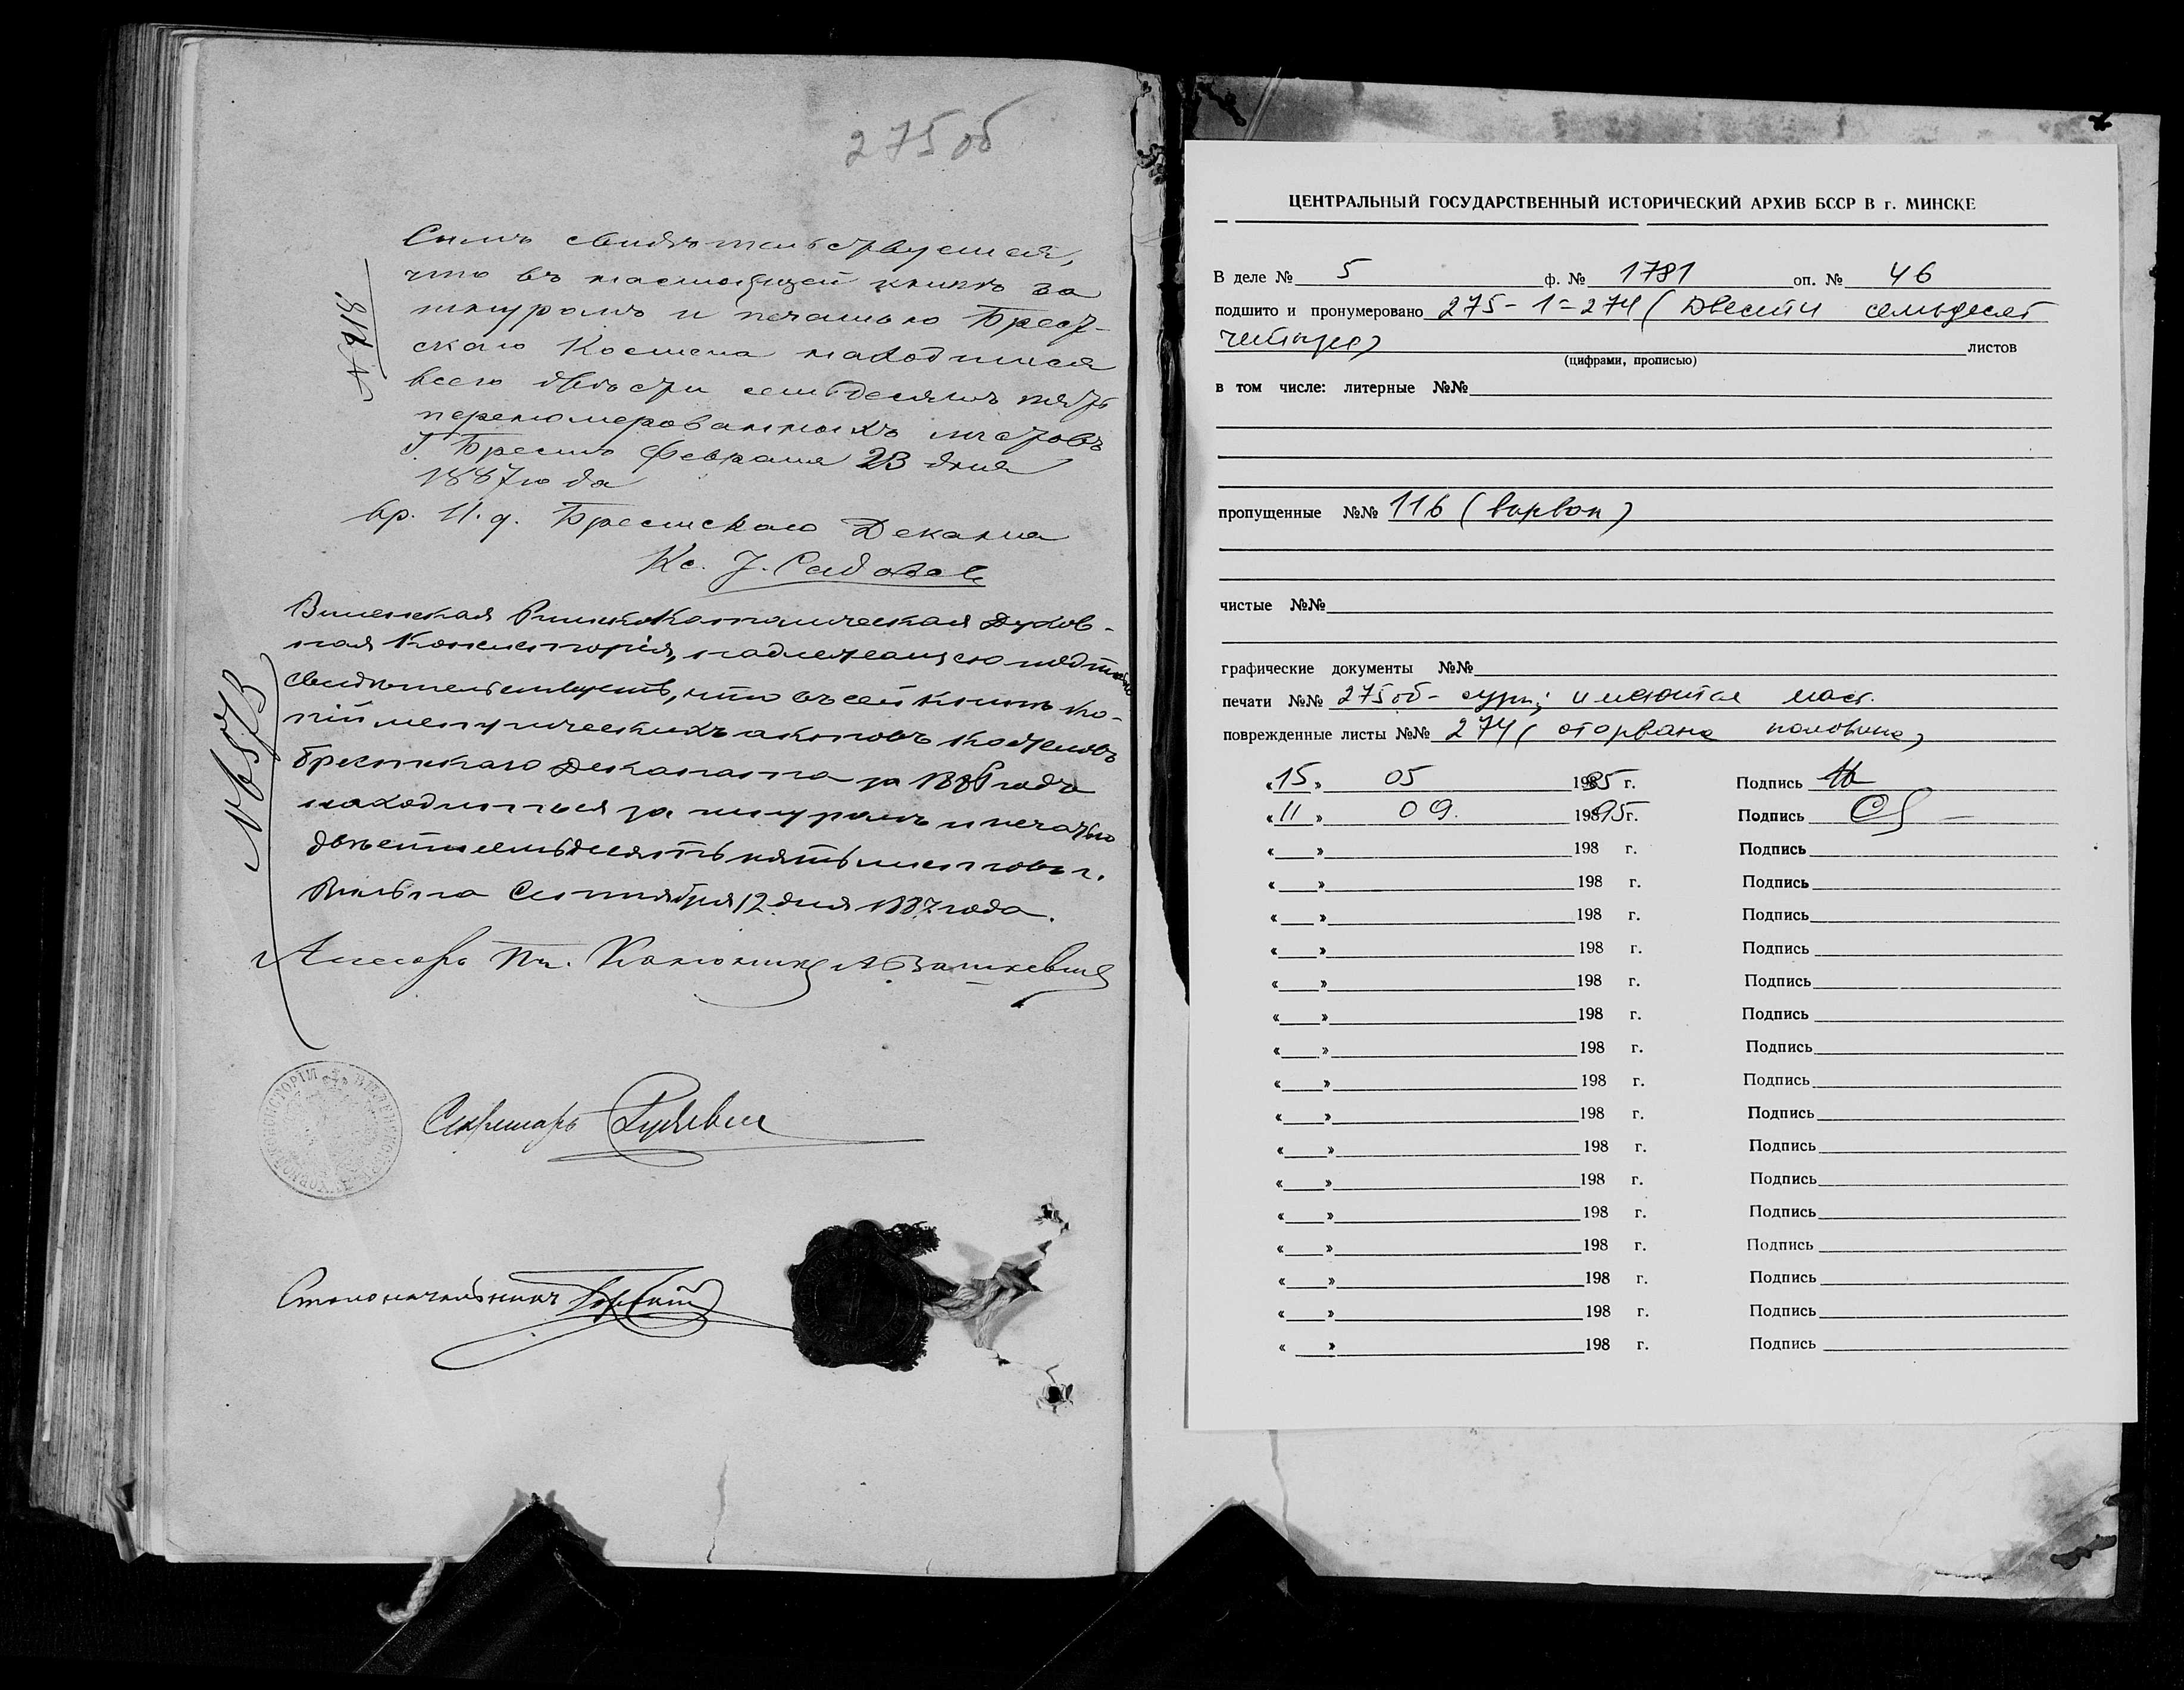 275 об
№ 918
Симъ свидѣтельствуется,
что въ настоящей книгѣ за
шнуромъ и печатью Брест-
скаго Костела находится
всего двѣсти семьдесятъ пять
перенумерованныхъ листовъ
Г. Брестъ Февраля 23 дня
1887 года
вр. И. д. Брестскаго Декана
Кс. J. Садовск
Виленская Римско Католическая Духов-
ная Консисторія, надлежащею подписью
свидѣтельствуетъ, что въ сей книгѣ ко-
пій метрическихъ актовъ костеловъ
Брестскаго Деканата за 1886 годъ
находиться за шнуромъ и печатью
двѣсти семьдесять пять листовъ г.
Вильна Сентября 12 дня 1887 года.
Ассесоръ Пр. Каноникъ
Секретарь
Столоначальникъ
ЦЕНТРАЛЬНЫЙ ГОСУДАРСТВЕННЫЙ ИСТОРИЧЕСКИЙ АРХИВ БССР В г. МИНСКЕ
В деле № 5 ф. № 1781 оп. № 46
подшито и пронумеровано 275-1=274 (Двести семьдесят
четыре) листов
(цифрами, прописью)
в том числе: литерные №№
пропущенные №№ 116 (вырван)
чистые №№
графические документы №№
печати №№ 275об - сург; имеются маст.
поврежденные листы №№ 274 (оторвана половина)
«15» 05 1985 г. Подпись
«11» 09. 19895 г. Подпись
«___» 198 г. Подпись
«___» 198 г. Подпись
«___» 198 г. Подпись
«___» 198 г. Подпись
«___» 198 г. Подпись
«___» 198 г. Подпись
«___» 198 г. Подпись
«___» 198 г. Подпись
«___» 198 г. Подпись
«___» 198 г. Подпись
«___» 198 г. Подпись
«___» 198 г. Подпись
«___» 198 г. Подпись
«___» 198 г. Подпись
«___» 198 г. Подпись
«___» 198 г. Подпись